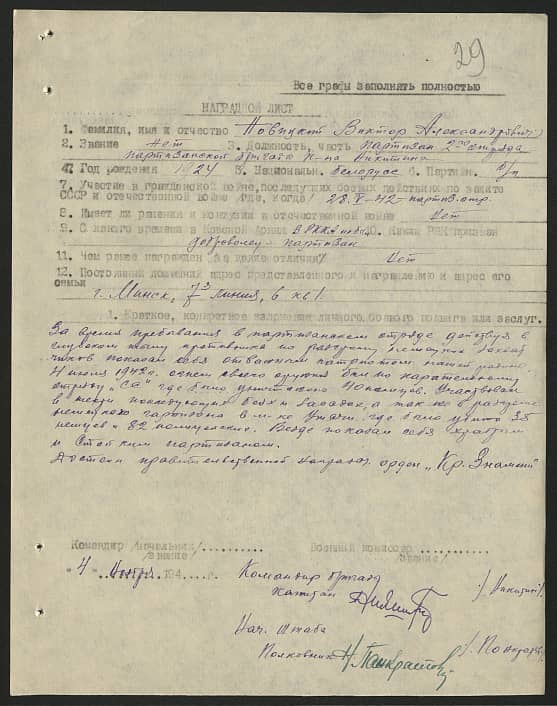 29
Все графы заполнять полностью
НАГРАДНОЙ ЛИСТ
1. Фамилия, имя и отчество Новицкий Виктор Александрович
2. Звание нет 3. Должность, часть партизан 2го отряда
партизанской бригады к-на Никитина
Год рождения 1924 5. Националън. белорус 6. Партийн. б/п
7. Участие в гражданской войне, последующих боевых действиях по защите
СССР и отечественной войне /где, когда/ 28.V-42- партиз. отр.
8. Имеет ли ранения и контузии в отечественной войне нет
9. С какого времени в Красной Армии в РККА не был 10. Каким РВК призван
доброволец - партизан
11. Чем ранее награжден /за какие отличия/ нет
12. Постоянный домашний адрес представленного к награждению и адрес его
семьи
г. Минск, 7я линия, 6 кв 1.
1. Краткое, конкретное изложение личного боевого подвига или заслуг.
За время пребывания в партизанском отряде действуя в
глубоком тылу противника по разгрому немецких захват
чиков показал себя отважным патриотом нашей родины.
4 июля 1942 г. огнем своего оружия бил по карательному
отряду "СС" где было уничтожено 40 немцев. Участвовал
в целом последующих боях и засадах, а так же в разгроме
немецкого гарнизона в м-ке Узляны где было убито 35
немцев и 82 полицейских. Везде показал себя храбрым
и стойким партизаном.
Достоин правительственной награды орден "Кр. Знамени"
Командир /начальник/.......... Военный комиссар ...........
/звание/ /звание/
"4" ноября 194....г.
Командир бригады
капитан /Никитин/.
Нач. Штаба
Полковник Н. Панкратов